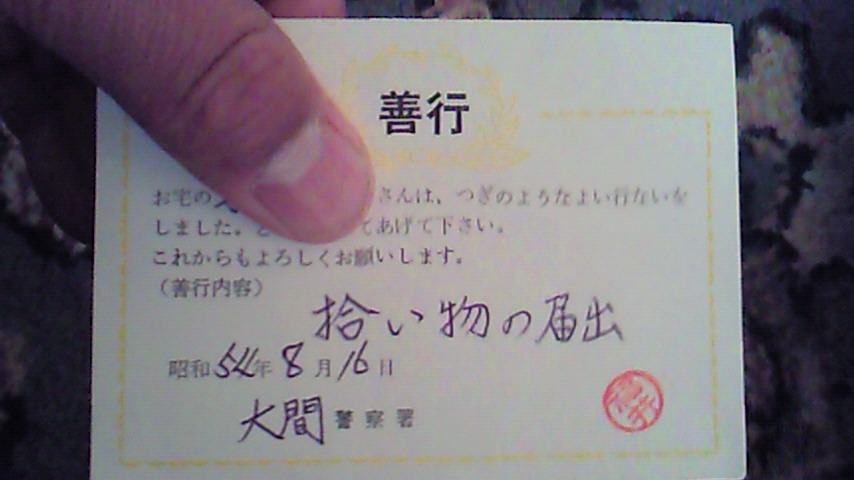 善行
お宅の さんは、つぎのようなよい行ないを
しました。 てあげて下さい。
これからもよろしくお願いします。
（善行内容）
拾い物の届出
昭和54年8月16日
大間警察署